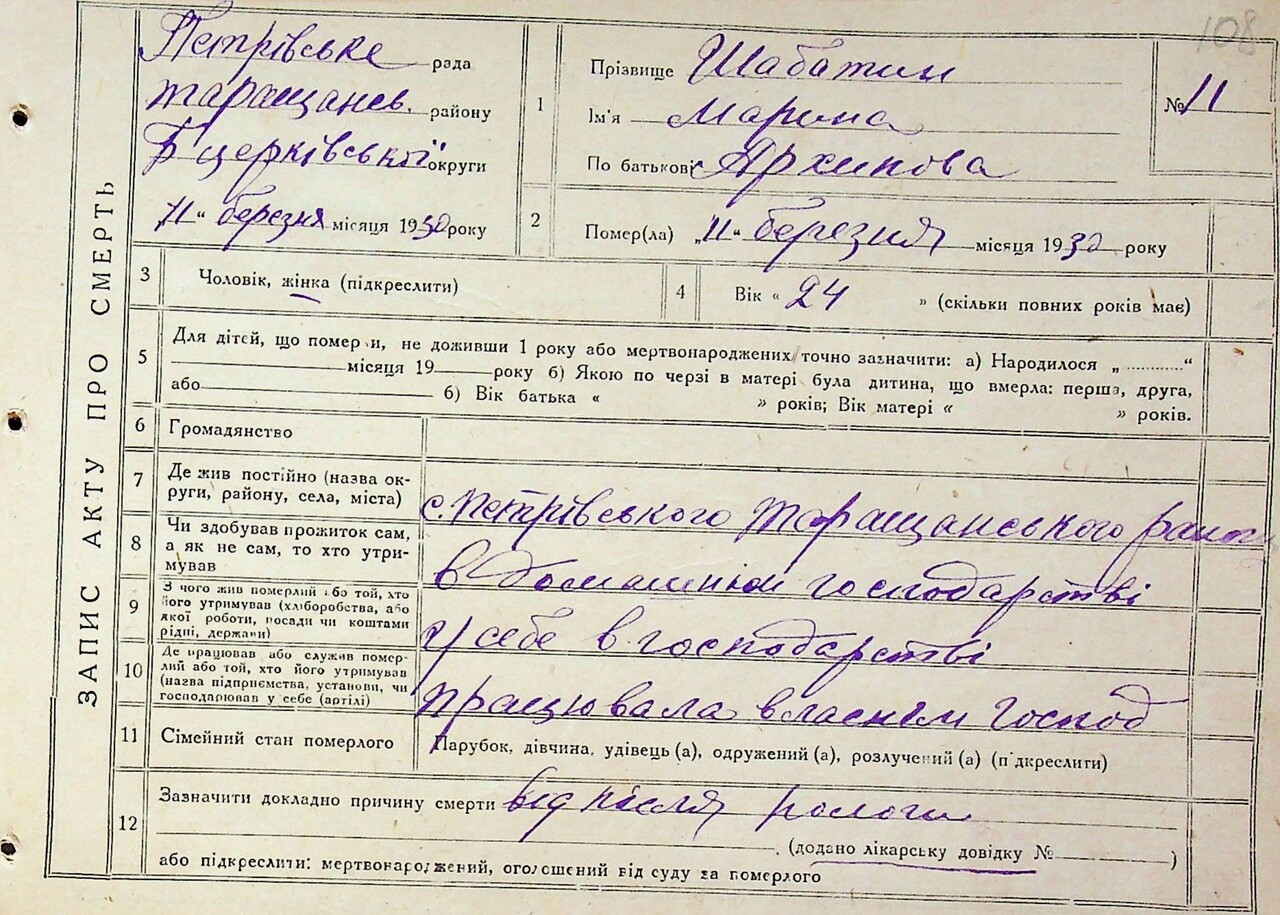 108
ЗАПИС АКТУ ПРО СМЕРТЬ
Петрівське рада
таращансь. району
Б церківської округи
"11" березня місяця 1930 року
1 Прізвище Шабатин
Ім'я Марина
По батькові Архипова
№ 11
2 Помер(ла) „11" березня місяця 1930 року
3 Чоловік, жінка (підкреслити)
4 Вік « 24 » (скільки повних років має)
5 Для дітей, що померли, не доживши 1 року або мертвонароджених точно зазначити: а) Народилося „ ............ “
місяця 19 року б) Якою по черзі в матері була дитина, що вмерла: перша, друга,
або б) Вік батька « » років; Вік матері « » років.
6 Громадянство
7 Де жив постійно (назва округи, району, села, міста)
с. Петрівського Таращанського район
8 Чи здобував прожиток сам,
а як не сам, то хто утримував
в домашнім господарстві
9 З чого жив померлий або той, хто
його утримував (хліборобства, або
якої роботи, посади чи коштами
рідні, держави)
у себе в господарстві
10 Де працював або служив померлий або той, хто його утримував
(назва підприємства, установи, чи
господарював у себе (артілі)
працювала власнім господ
11 Сімейний стан померлого Парубок, дівчина, удівець (а), одружений (а), розлучений (а) (підкреслити)
12 Зазначити докладно причину смерти від після рологи
(додано лікарську довідку № )
або підкреслити: мертвонароджений, оголошений від суду за померлого